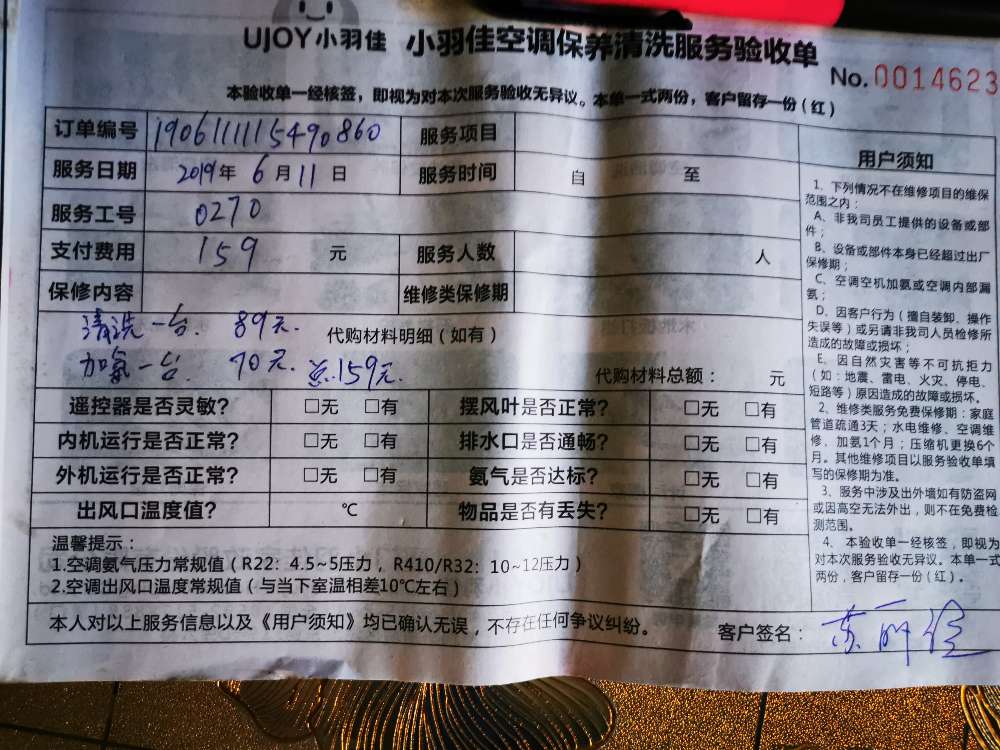 UJOY小羽佳 小羽佳空调保养清洗服务验收单
No.0014623
本验收单一经核签，即视为对本次服务验收无异议。本单一式两份，客户留存一份(红)
订单编号 1906111115490860 服务项目
服务日期 2019年6月11日 服务时间 自 至
服务工号 0270
支付费用 159 元 服务人数 人
保修内容 维修类保修期
清洗一台 89元.
代购材料明细(如有)
加氨一台 70元 总159元.
代购材料总额： 元
遥控器是否灵敏? □无 □有 摆风叶是否正常? □无 □有
内机运行是否正常? □无 □有 排水口是否通畅? □无 □有
外机运行是否正常? □无 □有 氨气是否达标? □无 □有
出风口温度值? ℃ 物品是否有丢失? □无 □有
温馨提示：
1.空调氨气压力常规值(R22：4.5~5压力，R410/R32：10~12压力)
2.空调出风口温度常规值(与当下室温相差10℃左右)
本人对以上服务信息以及《用户须知》均已确认无误，不存在任何争议纠纷。
客户签名：
用户须知
1、下列情况不在维修项目的维保
范围之内：
A、非我司员工提供的设备或部
件；
B、设备或部件本身已经超过出厂
保修期；
C、空调空机加氨或空调内部漏
氨；
D、因客户行为(擅自装卸、操作
失误等)或另请非我司人员检修所
造成的故障或损坏；
E、因自然灾害等不可抗拒力
(如：地震、雷电、火灾、停电、
短路等)原因造成的故障或损坏。
2、维修类服务免费保修期：家庭
管道疏通3天；水电维修、空调维
修、加氨1个月；压缩机更换6个
月。其他维修项目以服务验收单填
写的保修期为准。
3、服务中涉及出外墙如有防盗网
或因高空无法外出，则不在免费检
测范围。
4、本验收单一经核签，即视为
对本次服务验收无异议。本单一式
两份，客户留存一份(红)。